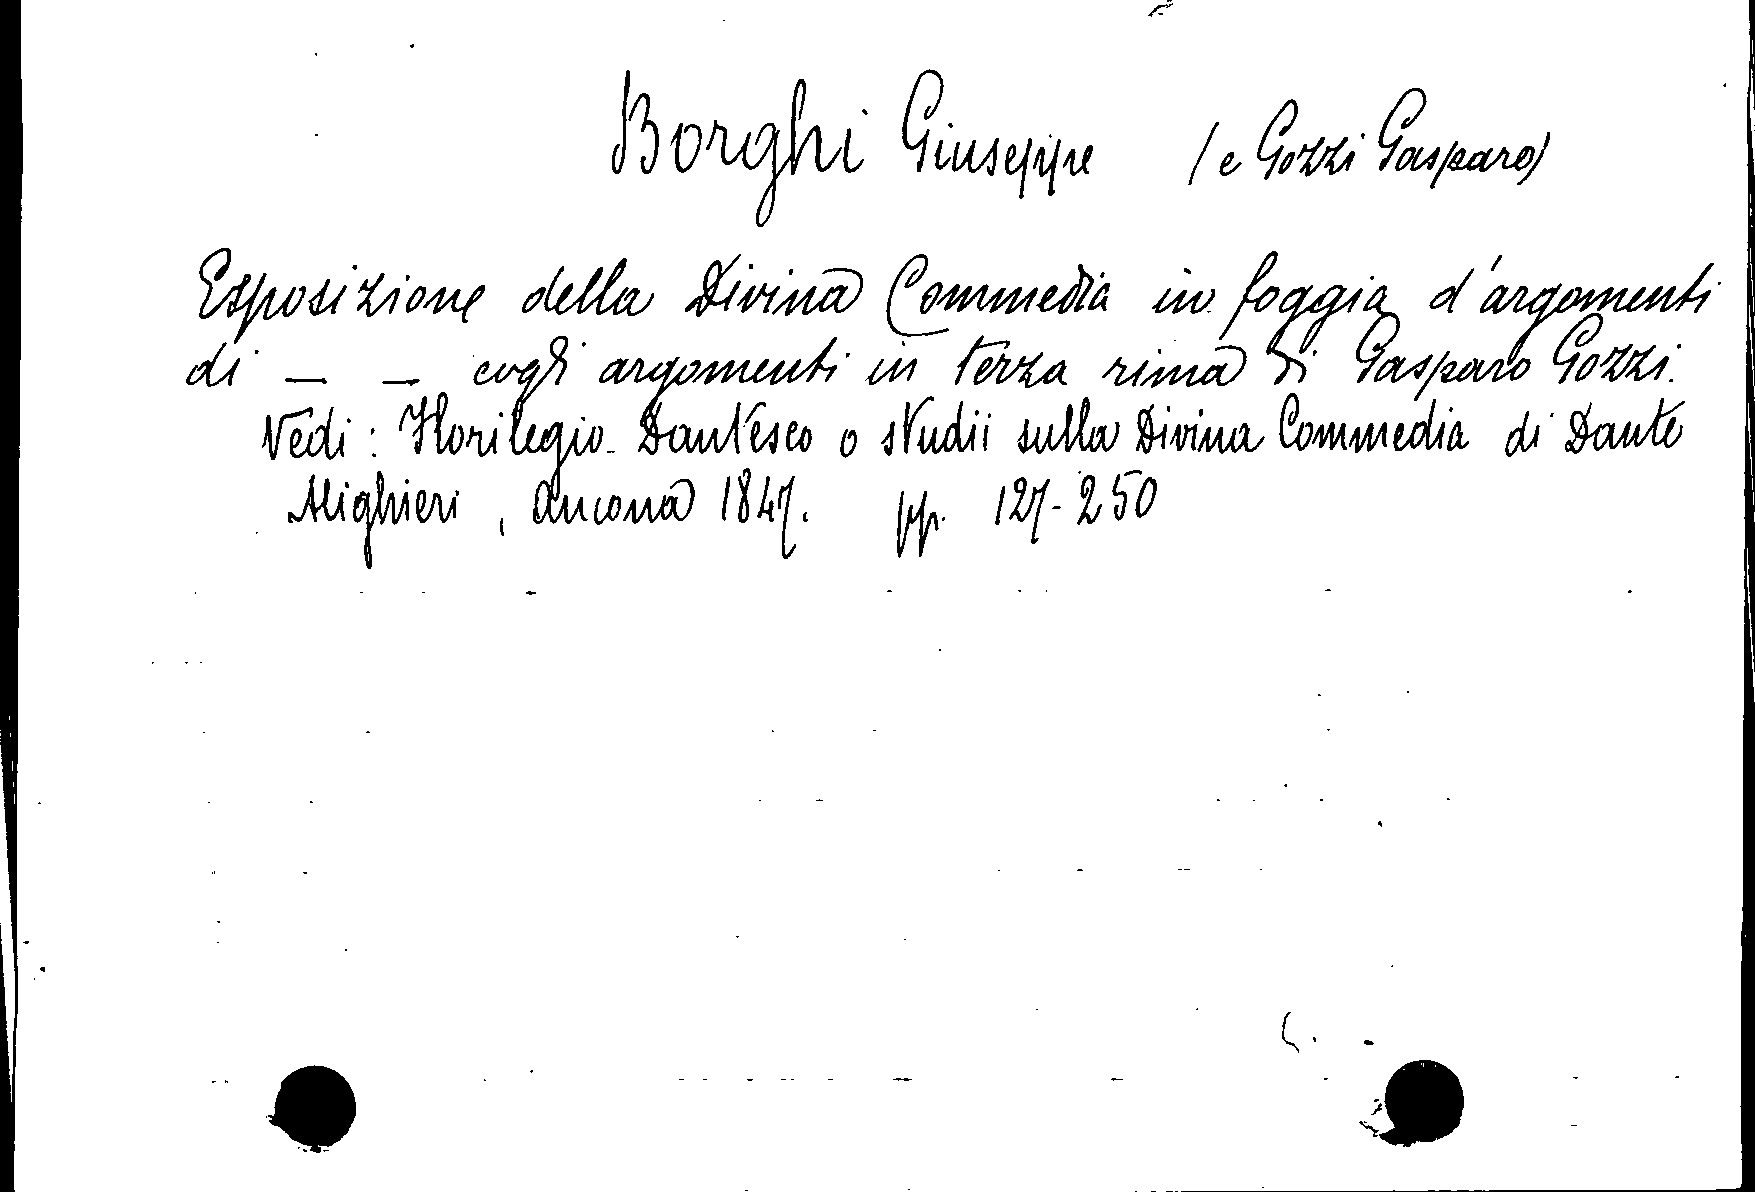 Borghi Giuseppe (e Gozzi Gasparo)
Esposizione della Divina Commedia in foggia d'argomenti
di _ _ cogli argomenti in terza rima di Gasparo Gozzi.
Vedi: Florilegio Dantesco o studii sulla Divina Commedia di Dante
Alighieri, Ancona 1847. pp. 127-250